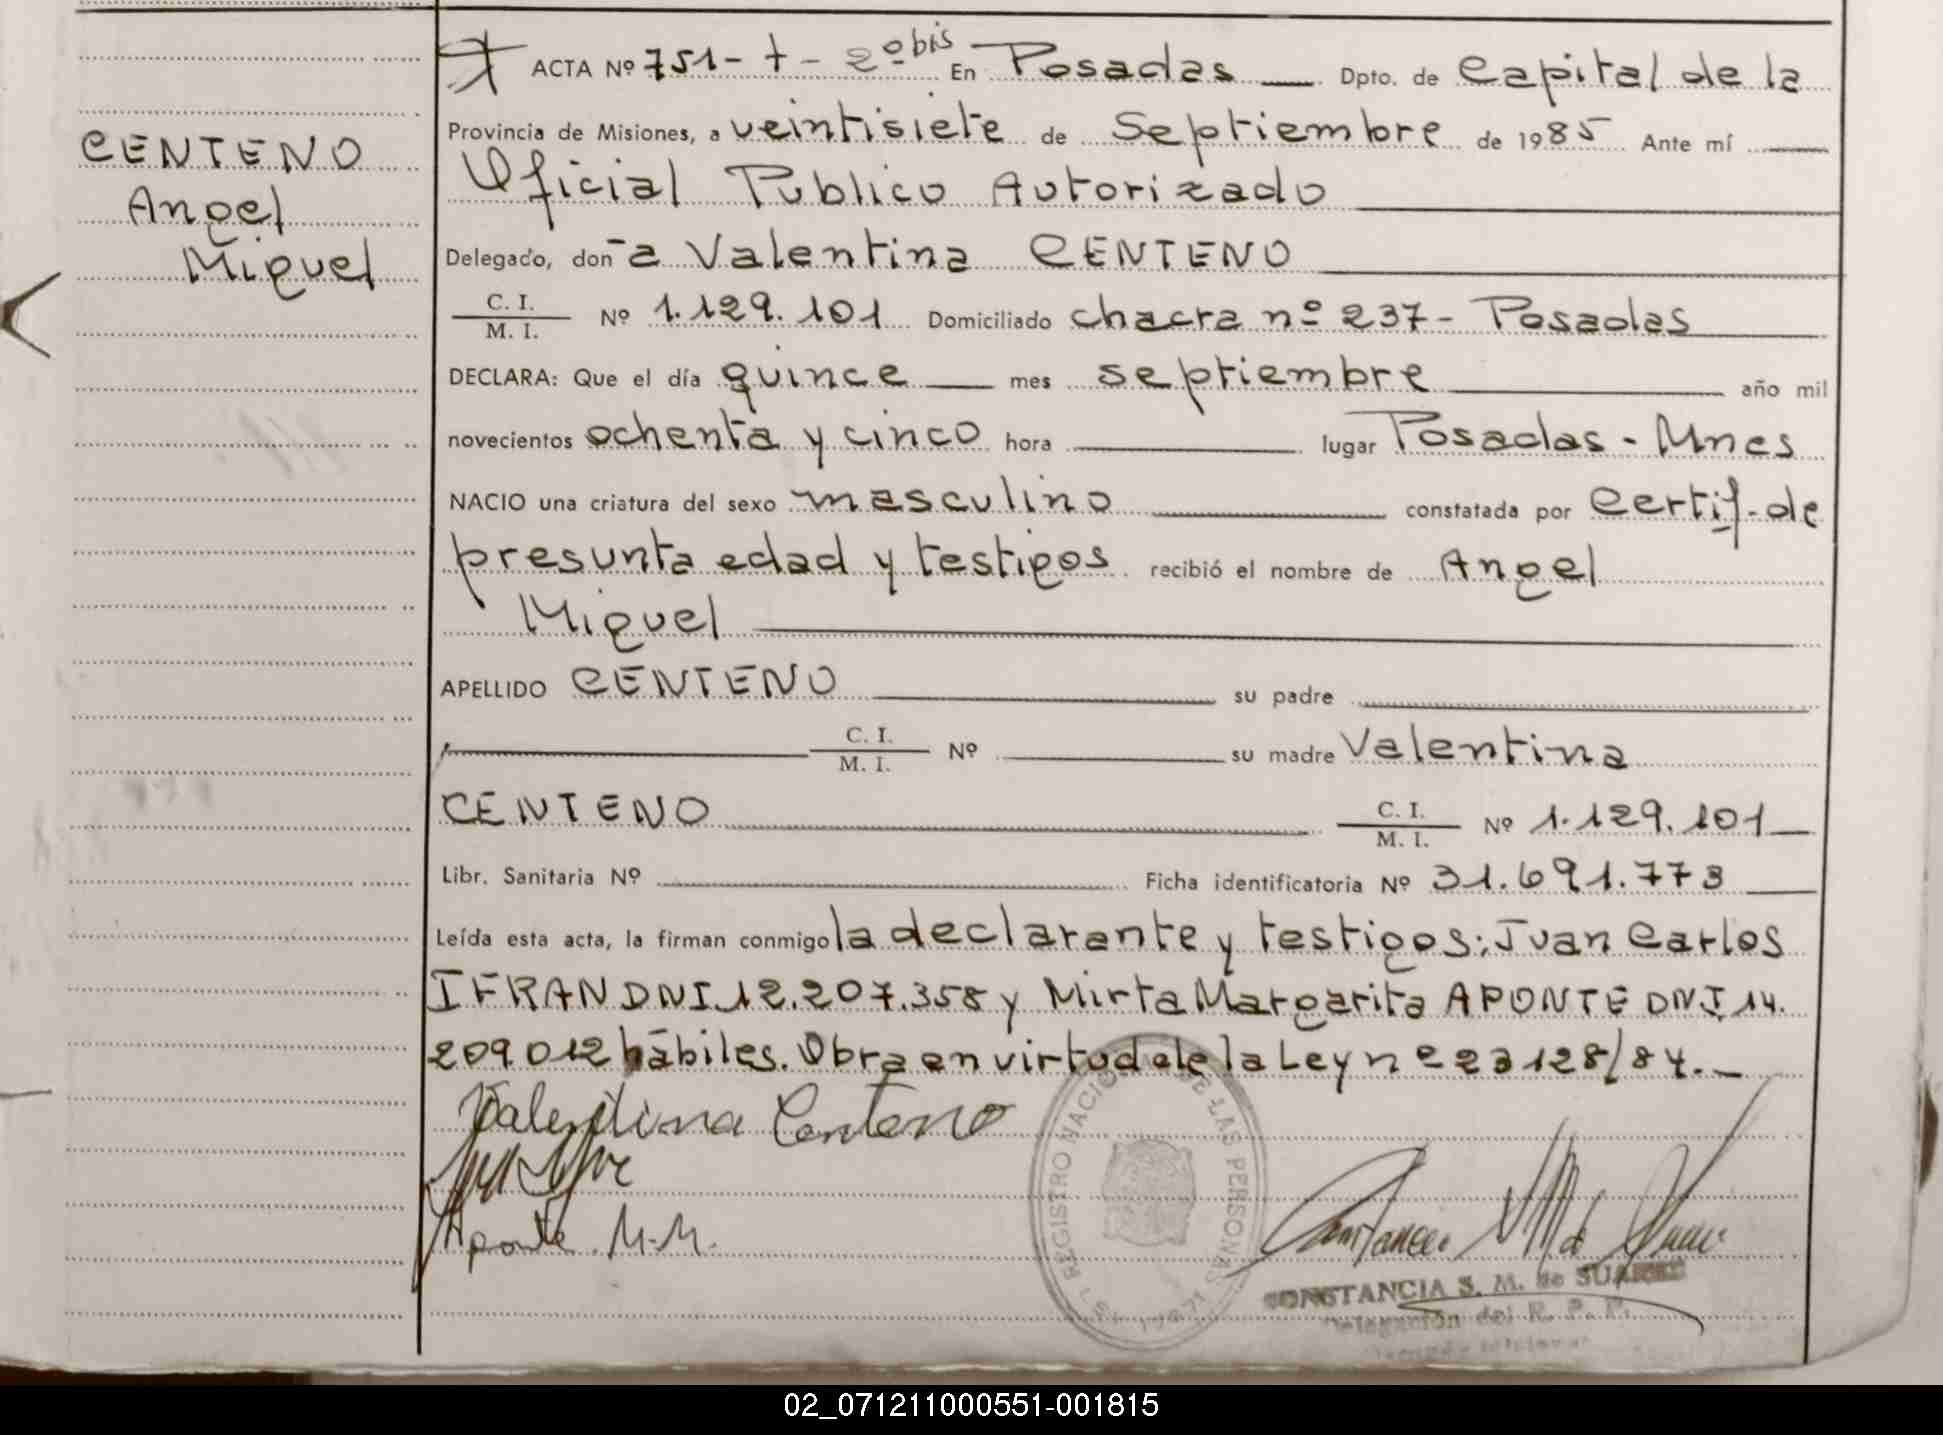 ACTA Nº 751-t-2º bis En Posadas Dpto. de Capital de la
Provincia de Misiones, a veintisiete de Septiembre de 1985 Ante mí
Oficial Publico Autorizado
Delegado, doña Valentina CENTENO
C. I. / M. I. Nº 1.129.101 Domiciliado chacra nº 237 - Posadas
DECLARA: Que el día quince mes septiembre año mil
novecientos ochenta y cinco hora lugar Posadas - Mnes
NACIO una criatura del sexo masculino constatada por Certif. de
presunta edad y testigos recibió el nombre de Angel
Miguel
APELLIDO CENTENO su padre
C. I. / M. I. Nº su madre Valentina
CENTENO C. I. / M. I. Nº 1.129.101
Libr. Sanitaria Nº Ficha identificatoria Nº 31.691.773
Leída esta acta, la firman conmigo la declarante y testigos: Juan Carlos
IFRAN DNI 12.207.358 y Mirta Margarita APONTE DNI 14.
209.012 hábiles. Obra en virtud de la Ley nº 23128/84.-
Valentina Centeno
Aponte M.M.
CENTENO
Angel
Miguel
REGISTRO NACIONAL DE LAS PERSONAS
CONSTANCIA S. M. de SUAREZ
Delegación del R. P. P.
02_071211000551-001815